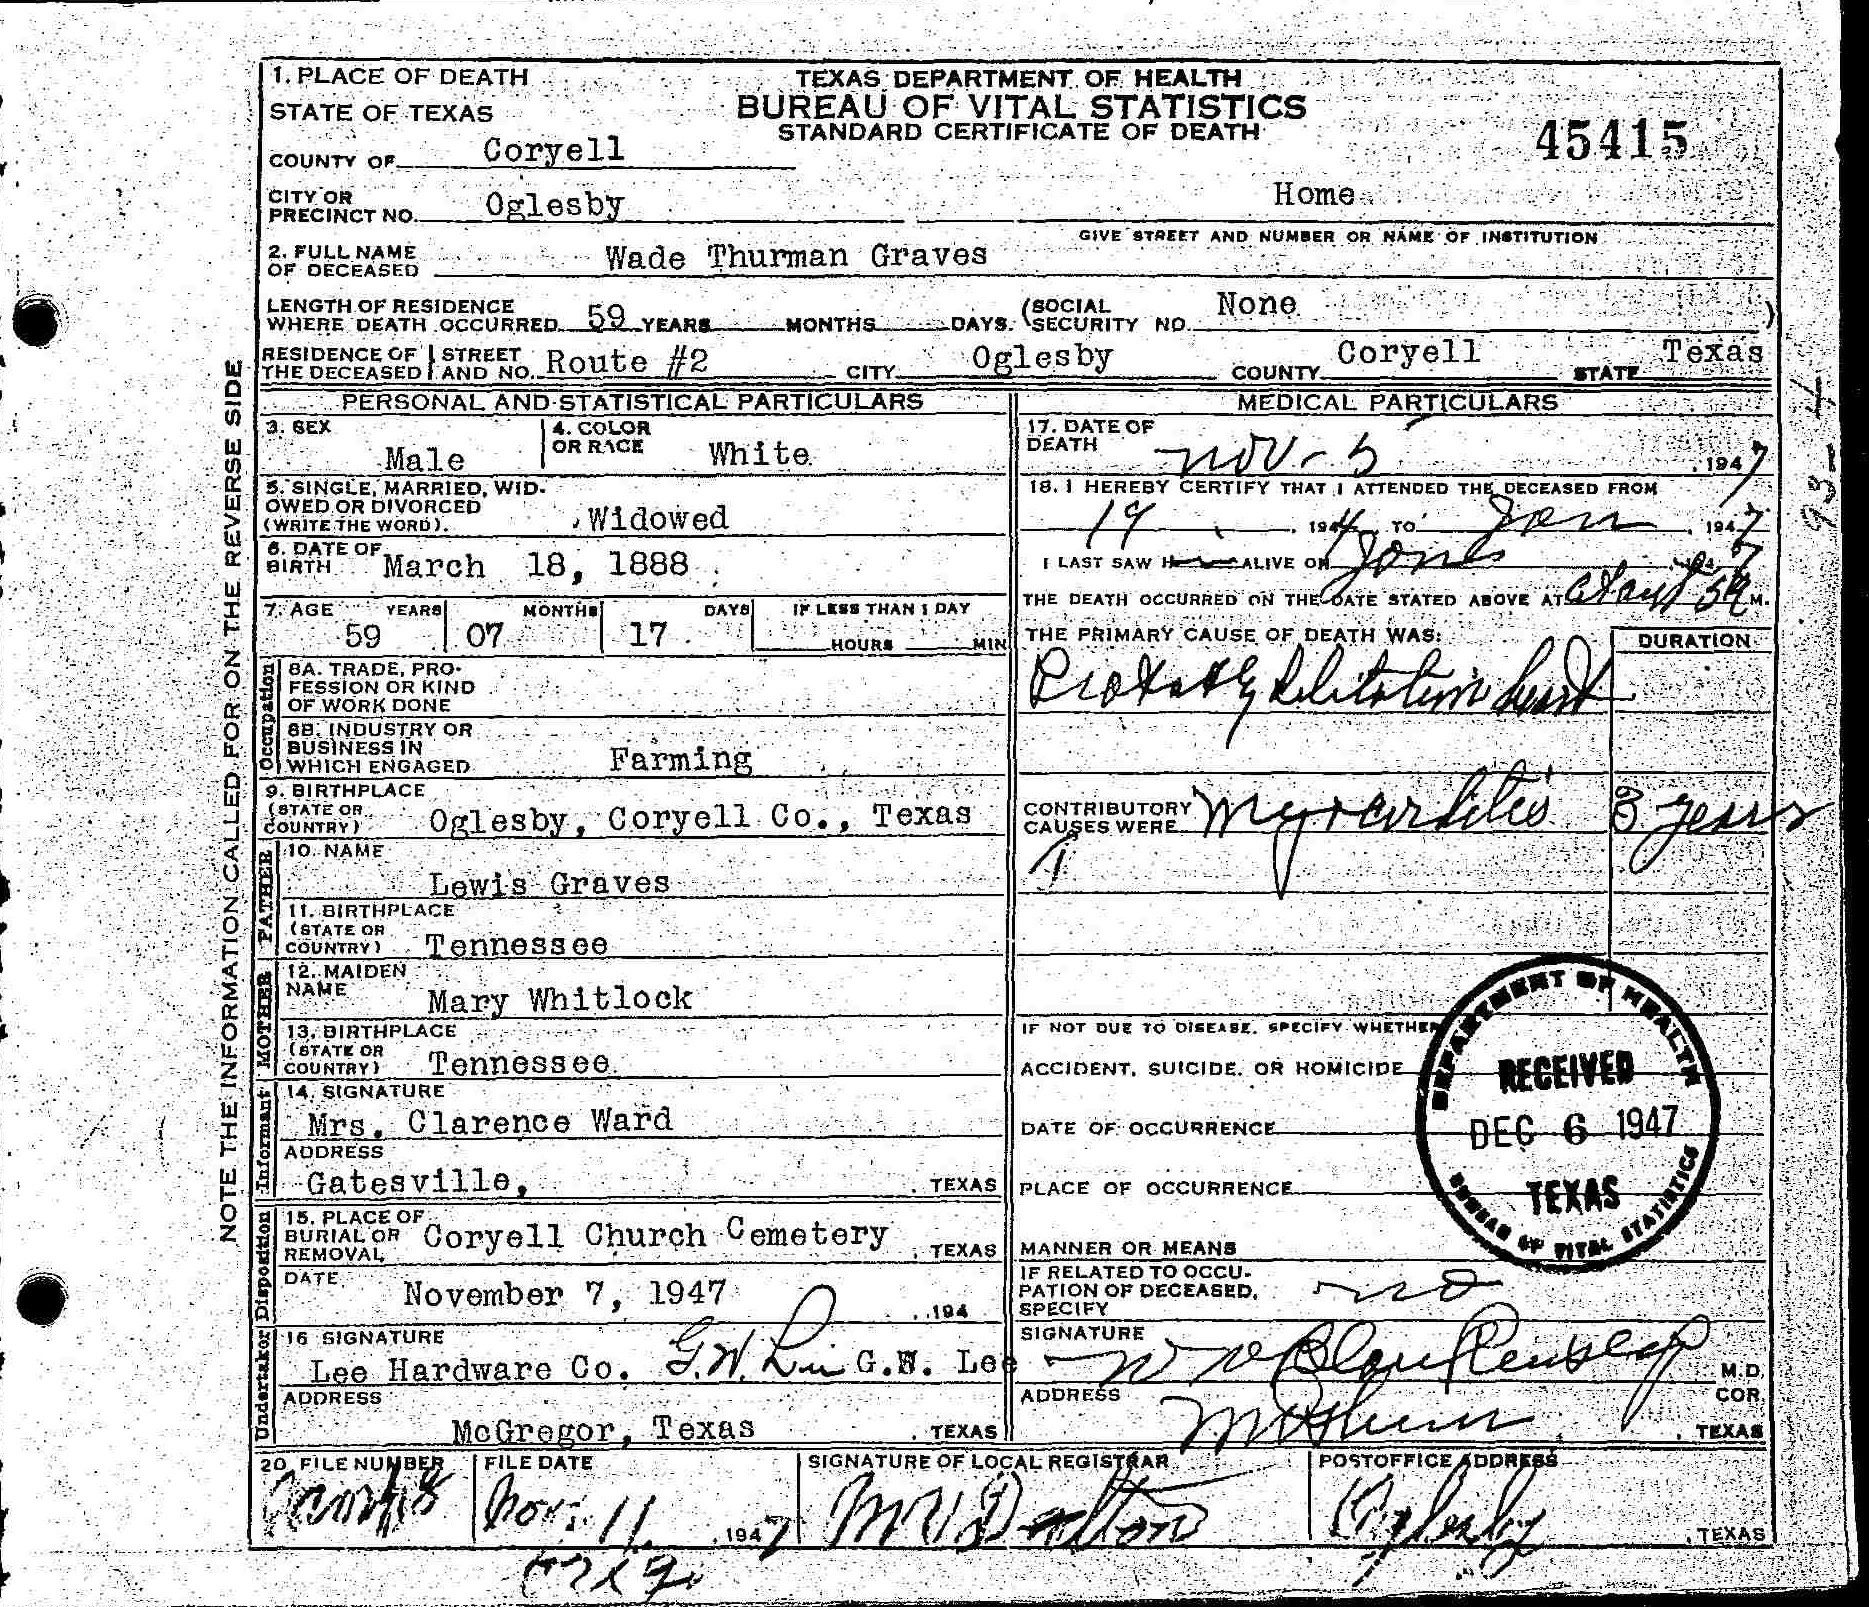 1. PLACE OF DEATH
STATE OF TEXAS
COUNTY OF Coryell
CITY OR
PRECINCT NO. Oglesby
TEXAS DEPARTMENT OF HEALTH
BUREAU OF VITAL STATISTICS
STANDARD CERTIFICATE OF DEATH
45415
Home
GIVE STREET AND NUMBER OR NAME OF INSTITUTION
2. FULL NAME
OF DECEASED Wade Thurman Graves
LENGTH OF RESIDENCE
WHERE DEATH OCCURRED 59 YEARS MONTHS DAYS. (SOCIAL
SECURITY NO. None )
RESIDENCE OF
THE DECEASED STREET
AND NO. Route #2 CITY Oglesby COUNTY Coryell STATE Texas
PERSONAL AND STATISTICAL PARTICULARS
3. SEX
Male
4. COLOR
OR RACE White
5. SINGLE, MARRIED, WID-
OWED OR DIVORCED
(WRITE THE WORD). Widowed
6. DATE OF
BIRTH March 18, 1888
7. AGE YEARS MONTHS DAYS IF LESS THAN 1 DAY
59 07 17 HOURS MIN
Occupation
8A. TRADE, PRO-
FESSION OR KIND
OF WORK DONE
8B. INDUSTRY OR
BUSINESS IN
WHICH ENGAGED Farming
9. BIRTHPLACE
(STATE OR
COUNTRY) Oglesby, Coryell Co., Texas
FATHER
10. NAME
Lewis Graves
11. BIRTHPLACE
(STATE OR
COUNTRY) Tennessee
MOTHER
12. MAIDEN
NAME Mary Whitlock
13. BIRTHPLACE
(STATE OR
COUNTRY) Tennessee
Informant
14. SIGNATURE
Mrs. Clarence Ward
ADDRESS
Gatesville, , TEXAS
Disposition
15. PLACE OF
BURIAL OR
REMOVAL Coryell Church Cemetery , TEXAS
DATE
November 7, 1947 , 194
Undertaker
16 SIGNATURE
Lee Hardware Co. G.W. Lee G.W. Lee
ADDRESS
McGregor, Texas , TEXAS
MEDICAL PARTICULARS
17. DATE OF
DEATH Nov - 5 , 1947
18. I HEREBY CERTIFY THAT I ATTENDED THE DECEASED FROM
19 , 194 TO , 1947
I LAST SAW H ALIVE ON
THE DEATH OCCURRED ON THE DATE STATED ABOVE AT about M.
THE PRIMARY CAUSE OF DEATH WAS: DURATION
Probably heart
CONTRIBUTORY
CAUSES WERE Myocarditis 3 years
IF NOT DUE TO DISEASE, SPECIFY WHETHER
ACCIDENT, SUICIDE, OR HOMICIDE
DATE OF OCCURRENCE
PLACE OF OCCURRENCE
MANNER OR MEANS
IF RELATED TO OCCU-
PATION OF DECEASED,
SPECIFY no
DEPARTMENT OF HEALTH
RECEIVED
DEC 6 1947
TEXAS
BUREAU OF VITAL STATISTICS
SIGNATURE
M.D.
COR.
ADDRESS
, TEXAS
20. FILE NUMBER
FILE DATE
Nov. 11 , 1947
SIGNATURE OF LOCAL REGISTRAR
Dalton
POSTOFFICE ADDRESS
Oglesby , TEXAS
NOTE THE INFORMATION CALLED FOR ON THE REVERSE SIDE